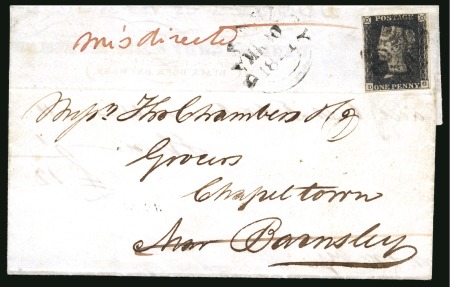 misdirected
POSTAGE
ONE PENNY
Messrs Thos Chambers & Co
Grocers
Chapeltown
Near Barnsley